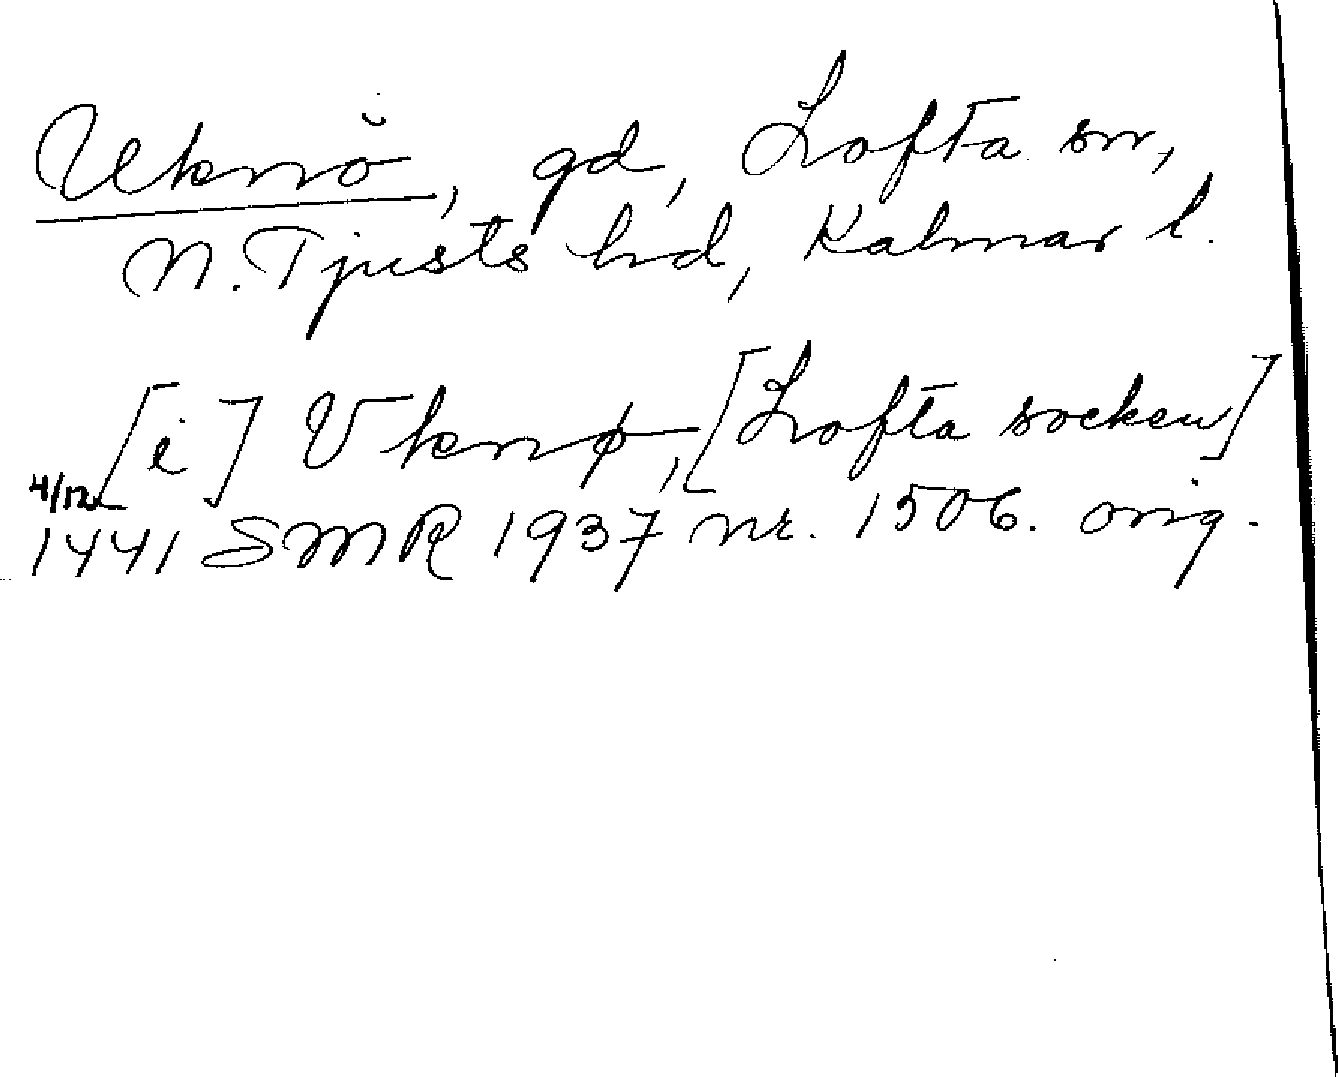 Uknö, gd, Lofta sn,
N. Tjusts hd, Kalmar l.
[i] Vknø, [Lofta socken]
4/12
1441 SMR 1937 nr. 1506. orig.